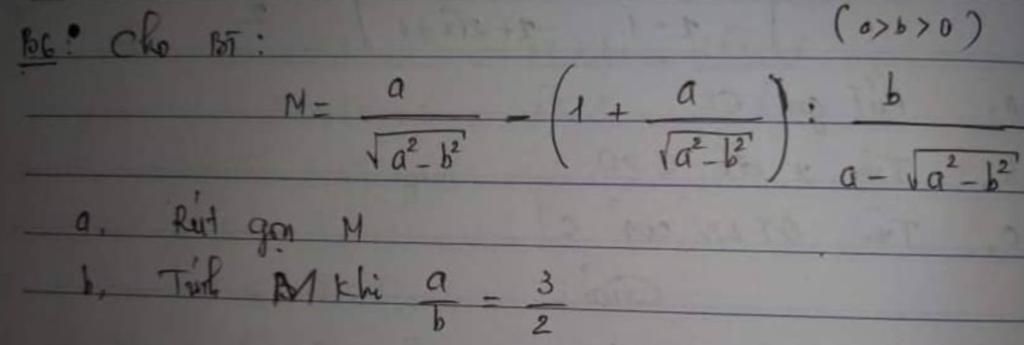 B6: Cho BT: (a>b>0)
M = a/√(a²-b²) - (1 + a/√(a²-b²)) : b/(a-√(a²-b²))
a, Rút gọn M
b, Tính M khi a/b = 3/2